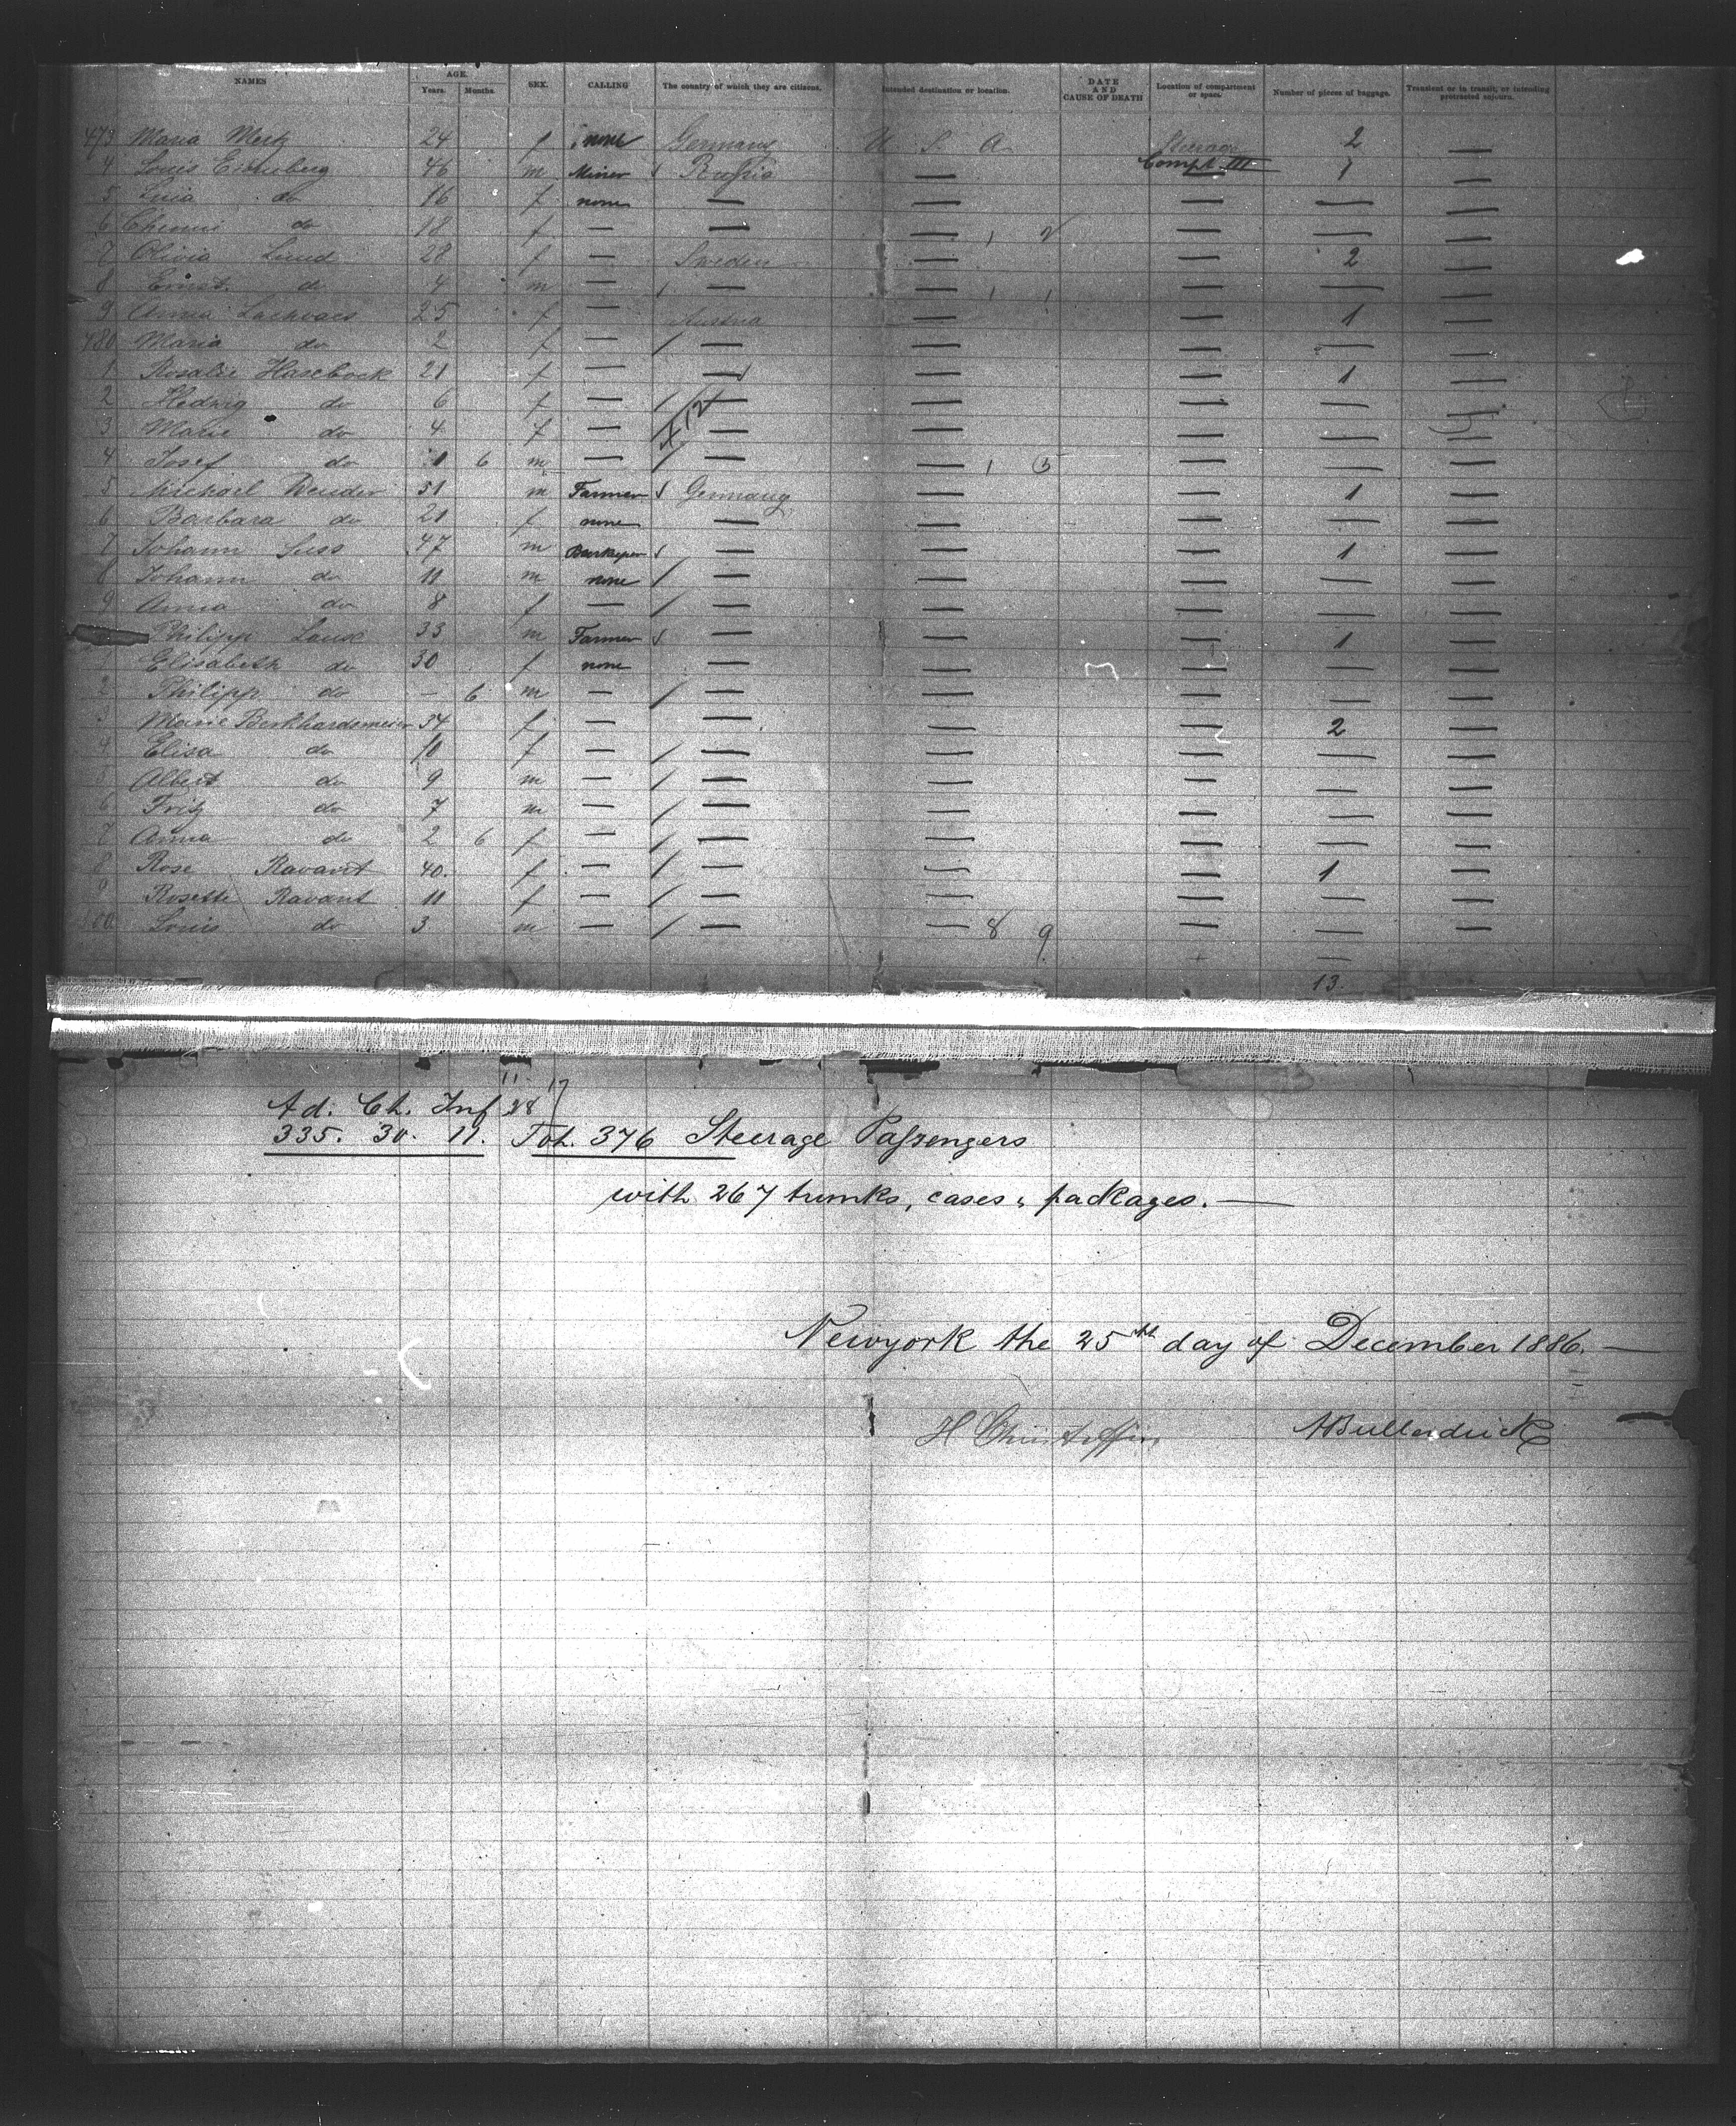 NAMES AGE. Years. Months. SEX. CALLING The country of which they are citizens. Intended destination or location. DATE AND CAUSE OF DEATH Location of compartment or space. Number of pieces of baggage. Transient or in transit, or intending protracted sojourn.
473 Maria Mertz 24 f none Germany U. S. A. Steerage 2 —
4 Louis 46 m Miner Russia — Compt. III 1 —
5 do 16 f none — — — — —
6 do 18 f — — — 1 2 — — —
7 Olivia Lund 28 f — Sweden — — 2 —
8 Ernst do 4 m — — — 1 1 — — —
9 Anna 25 f — Austria — — 1 —
480 Maria do 2 f — — — — — —
1 Rosalie Haseback 21 f — — — — 1 —
2 Hedwig do 6 f — — — — — —
3 Marie do 4 f — — — — — —
4 Josef do 6 m — — — 1 5 — — —
5 Michael 51 m Farmer Germany — — 1 —
6 Barbara do 21 f none — — — — —
7 Johann Suss 47 m — — — 1 —
8 Johann do 11 m none — — — — —
9 Anna do 8 f — — — — — —
Philipp 33 m Farmer — — — 1 —
1 Elisabeth do 30 f none — — — — —
2 Philipp do — 6 m — — — — — —
3 Marie Berkhardsmeier 34 f — — — — 2 —
4 Elisa do 10 f — — — — — —
5 Albert do 9 m — — — — — —
6 Fritz do 7 m — — — — — —
7 Anna do 2 6 f — — — — — —
8 Rose Ravant 40. f — — — — 1 —
9 Rosette Ravant 11 f — — — — — —
Louis do 3 m — — — 8 9 — — —
13.
11 17
Ad. Ch. Inf 28
335. 30. 11. Tot. 376 Steerage Passengers
with 267 trunks, cases, packages. —
Newyork the 25th day of December 1886. —